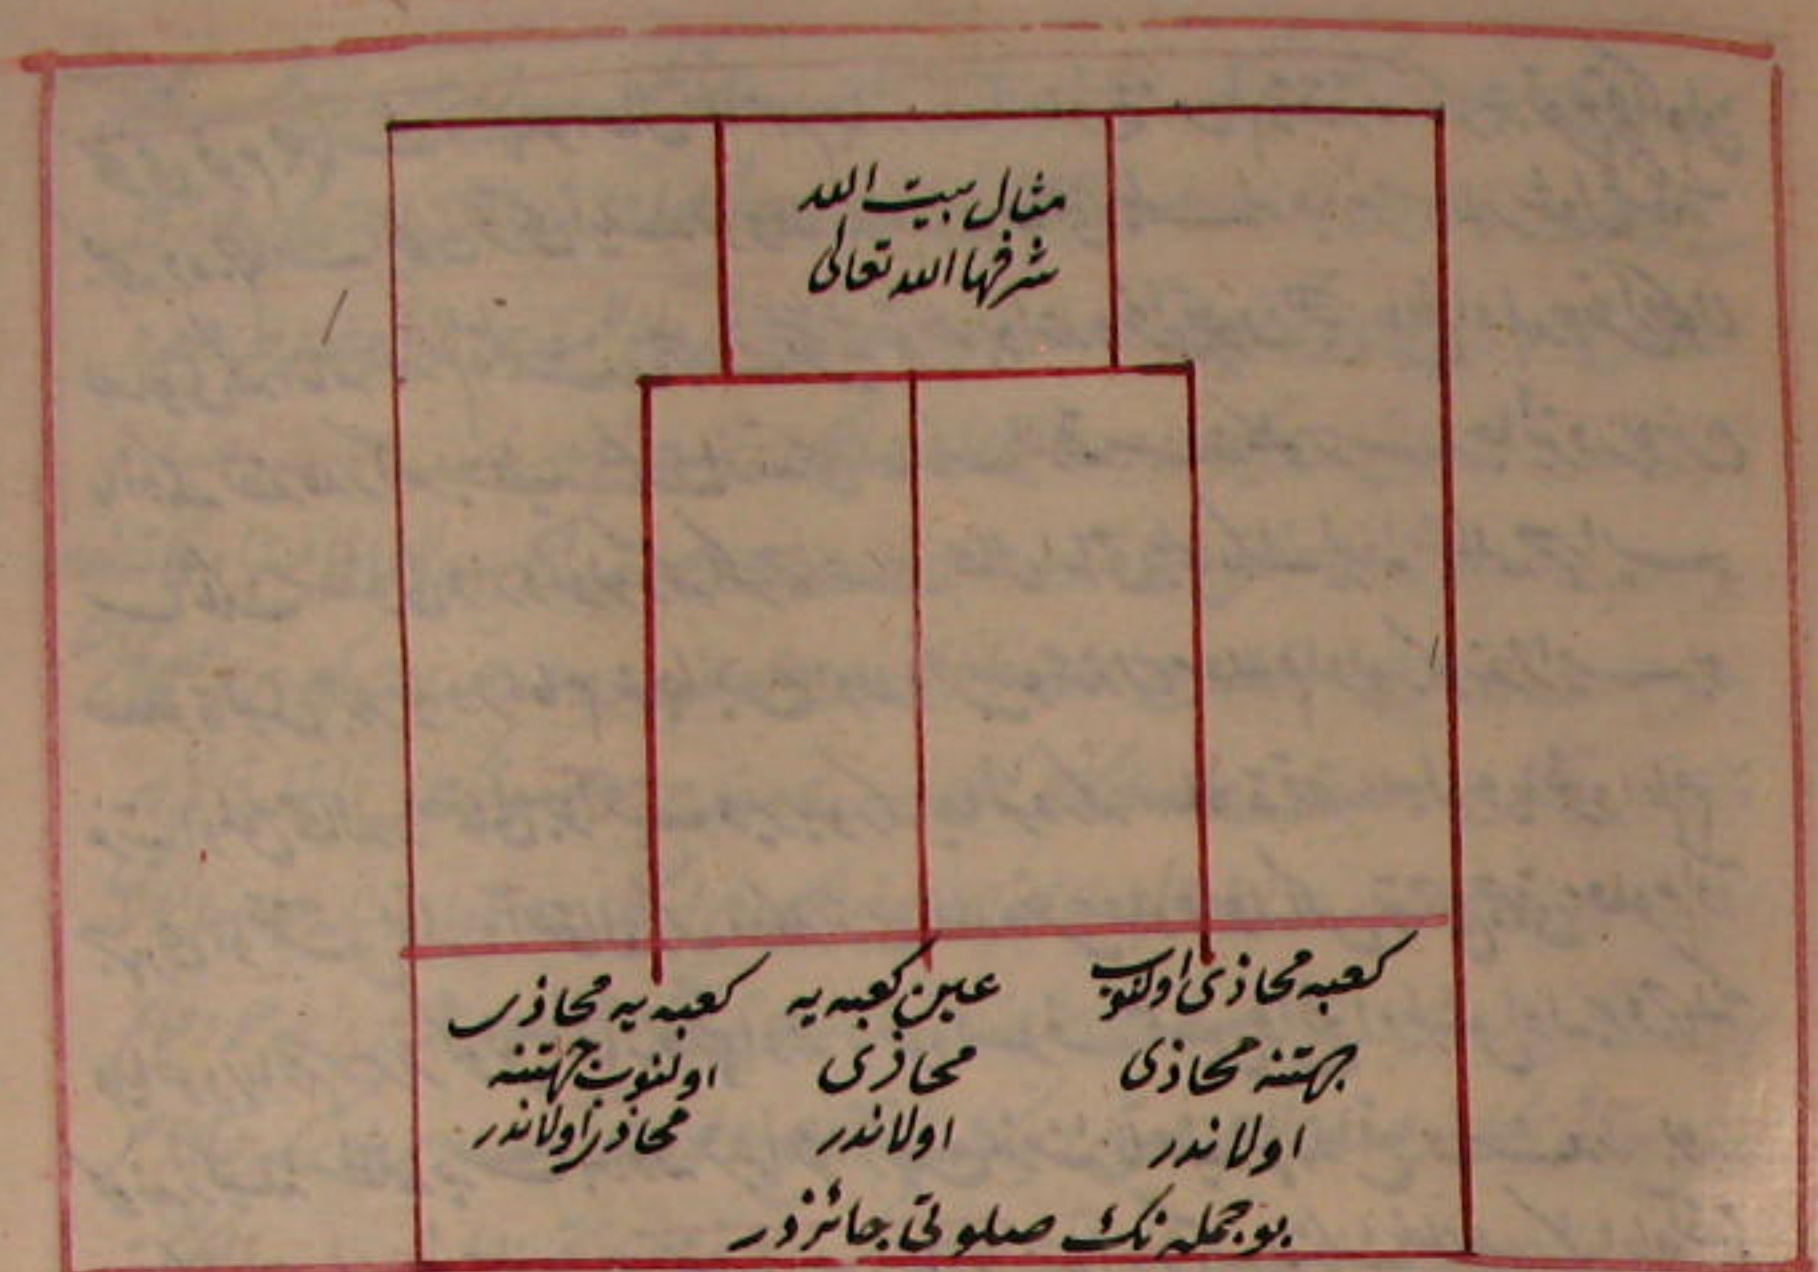 مثال بيت الله
شرفها الله تعالى
كعبه محاذى اولنوب
جهتنه محاذى
اولاندر
عين كعبه يه
محاذى
اولاندر
كعبه يه محاذى
اولنوب جهتنه
محاذى اولاندر
بو جمله نك صلوتى جائزدر